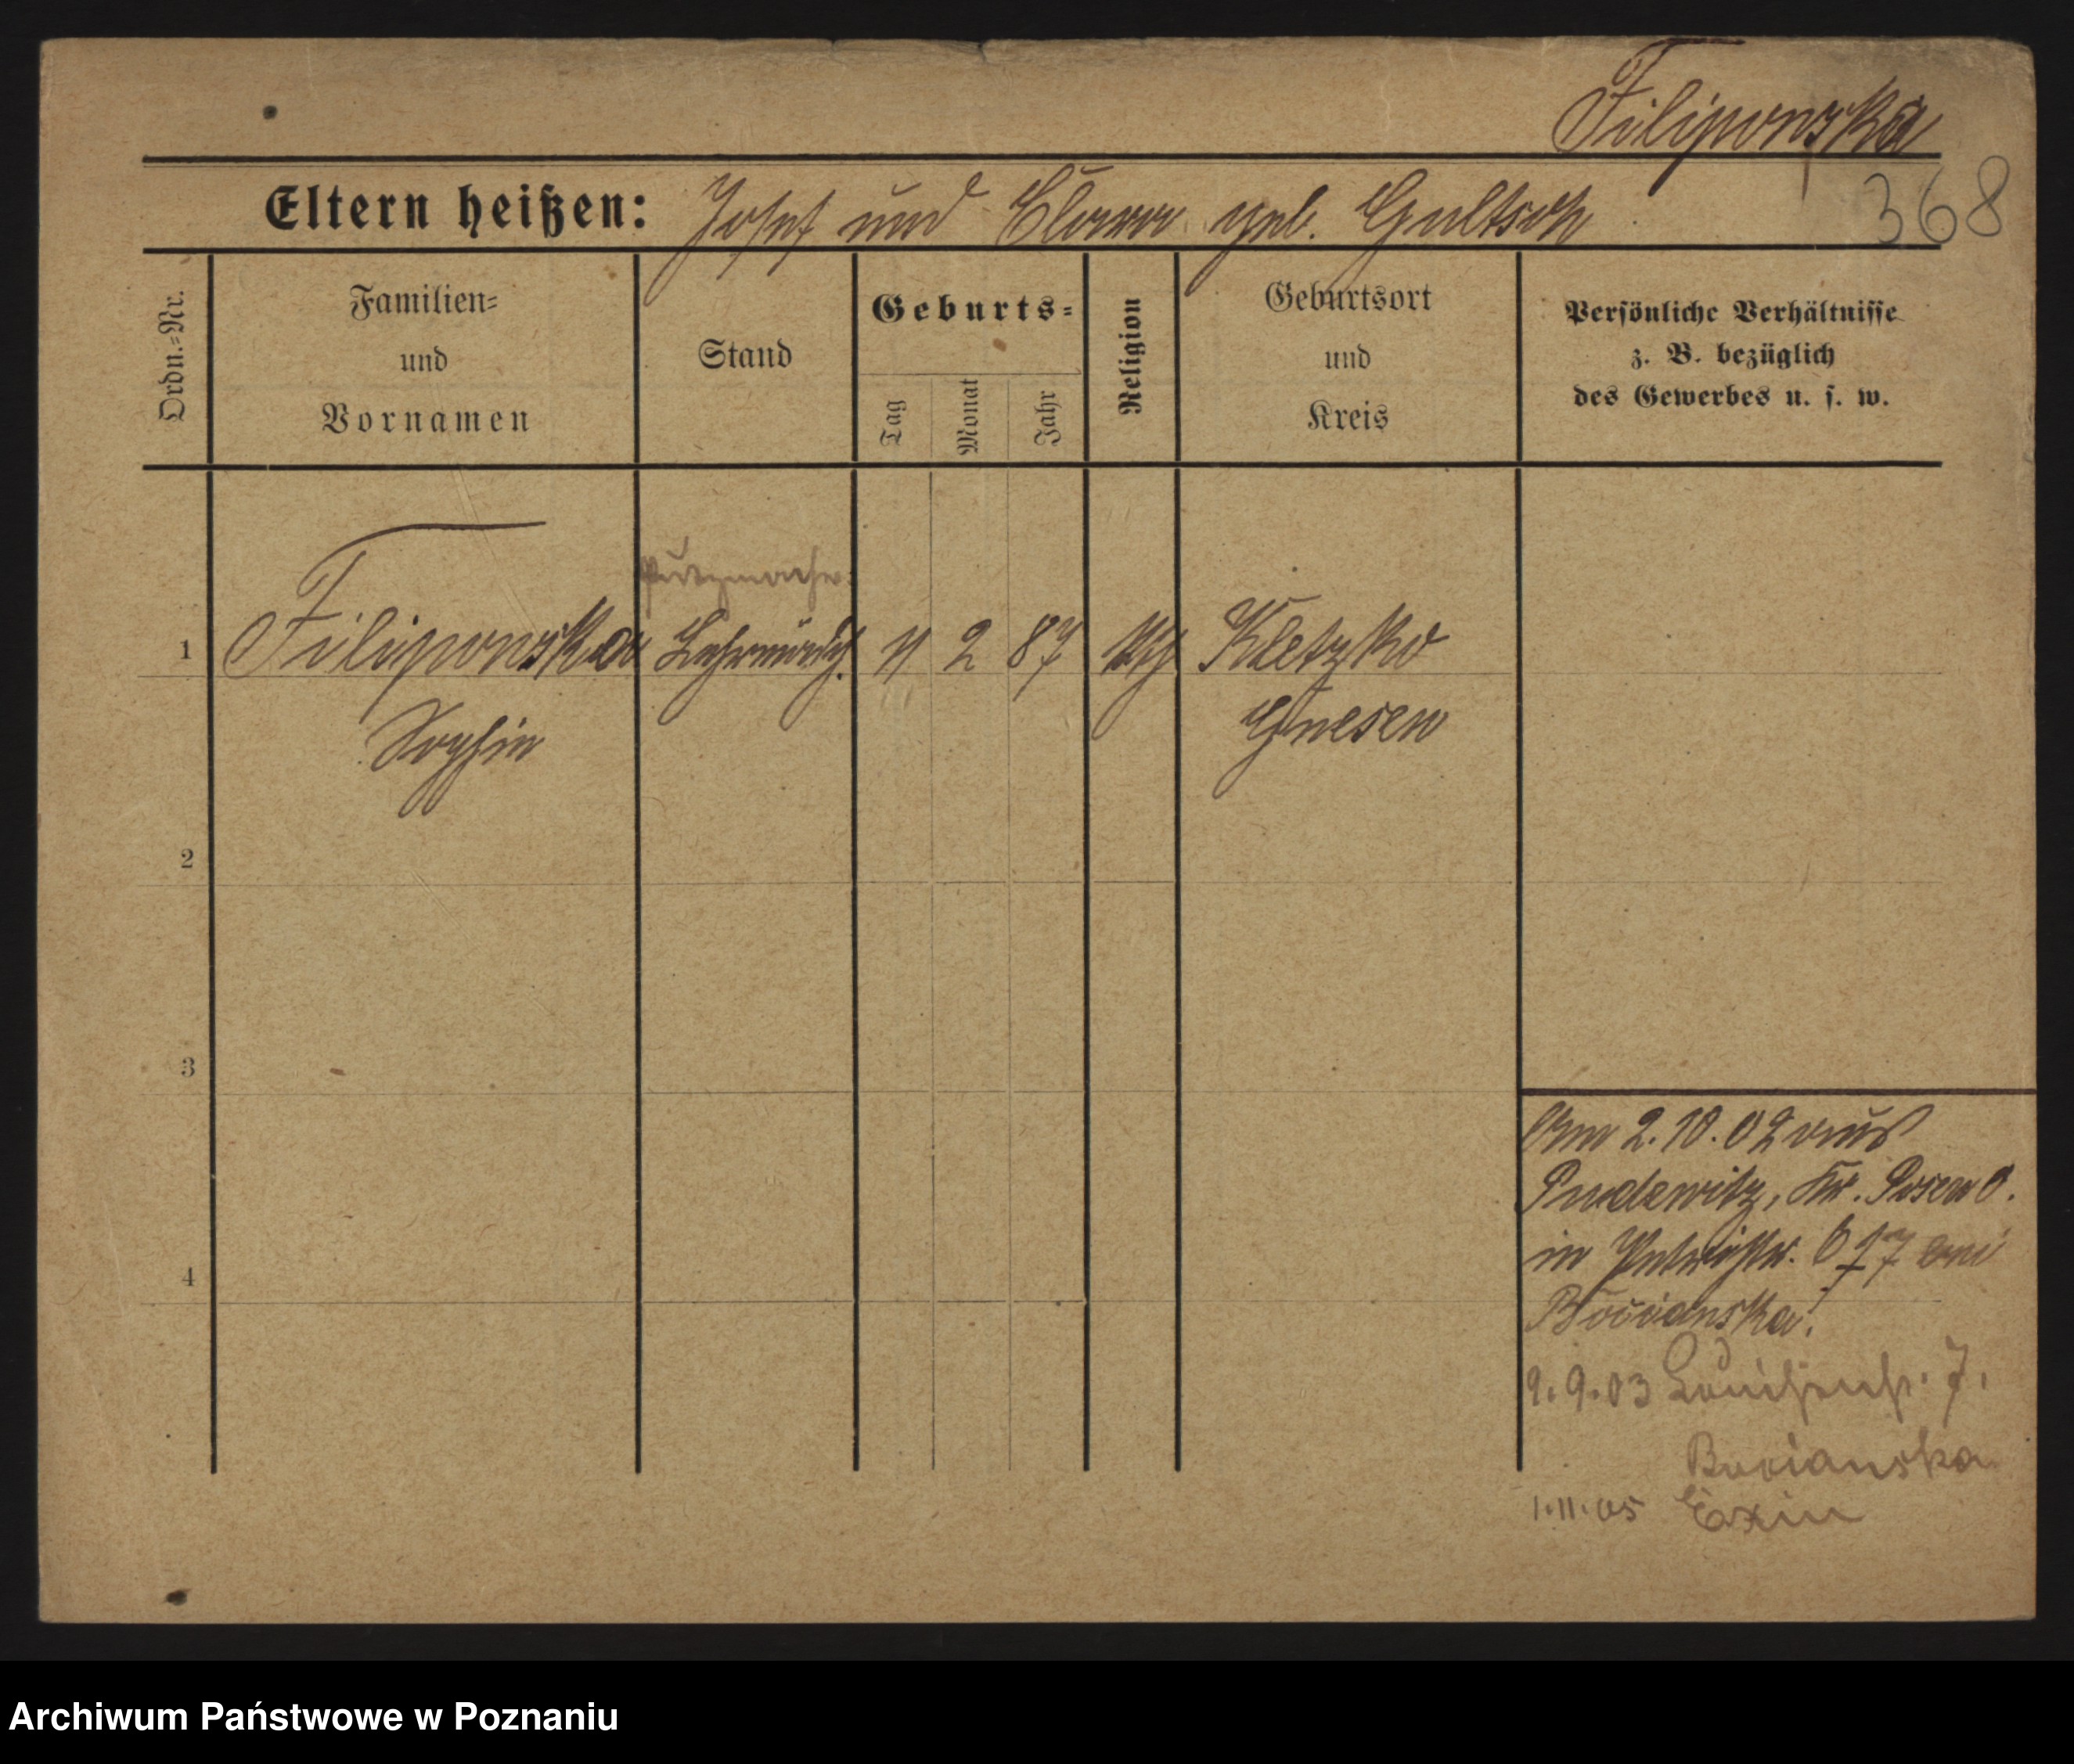 Filiponska
368
Eltern heißen: Josef und Clara geb. Gultsch
Ordn.-Nr.
Familien- und Vornamen
Stand
Geburts-
Tag
Monat
Jahr
Religion
Geburtsort und Kreis
Persönliche Verhältnisse
z. B. bezüglich
des Gewerbes u. s. w.
Putzmacher.
1 Filiponska Lehrmädch. 11 2 87 kth Kletzko
Sophie Gnesen
2
3
4
Am 2.10.02 aus
Pudewitz, Kr. Posen O.
in Petristr. 6 bei
Bocianska.
9.9.03 Louisenstr. 7.
Bocianska
1.11.05 Exin
Archiwum Państwowe w Poznaniu